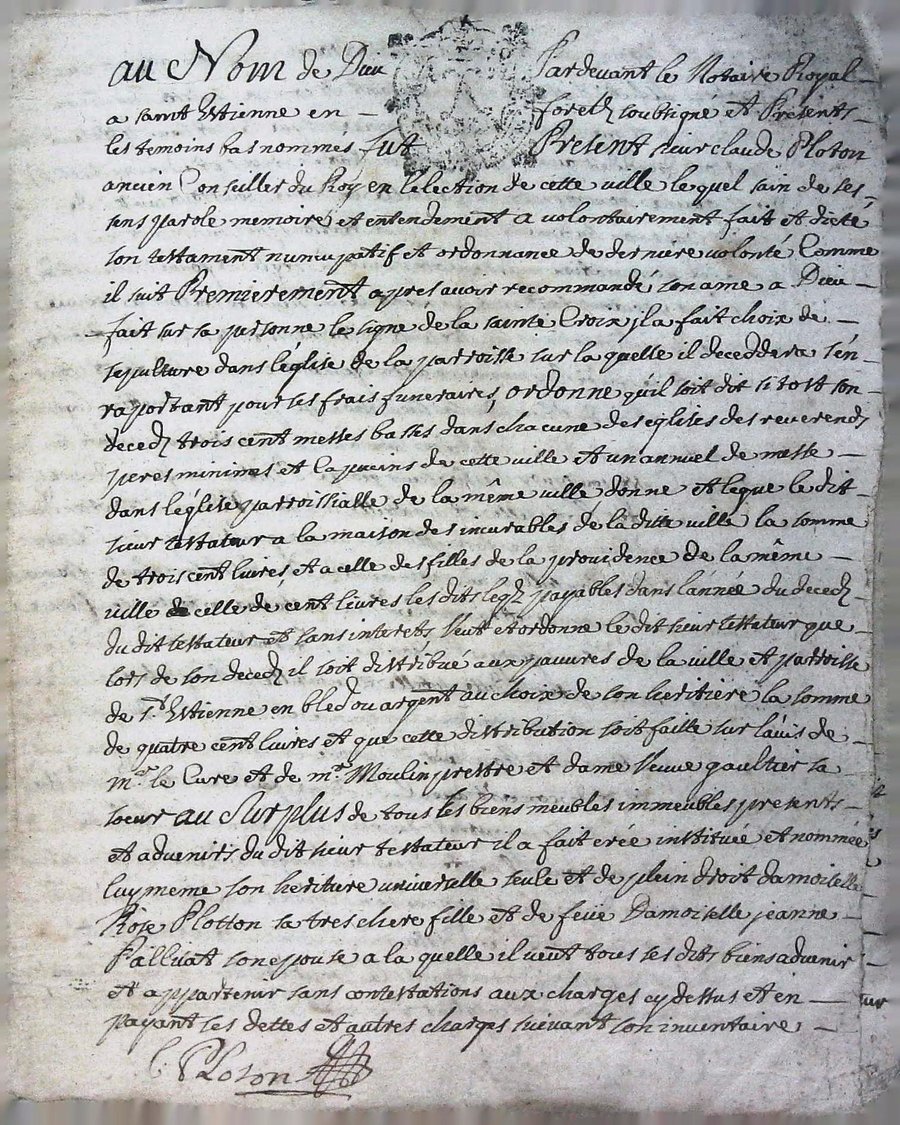 au Nom de Dieu Pardevant le Notaire Royal
a saint Estienne en foretz soubsigné et Presents
les temoins bas nommés fut Present sieur claude Ploton
ancien Conseiller du Roy en l'election de cette ville lequel sain de ses
sens parole memoire et entendement a volontairement fait et dicté
son testament nuncupatif et ordonnance de derniere volonté Comme
il suit Premierement apres avoir recommandé son ame a Dieu
fait sur sa personne le signe de la sainte Croix jl a fait choix de
sepulture dans léglise de la parroisse sur la quelle il deceddera s'en
raportant pour ses frais funeraires, ordonne qu'il soit dit si tost son
décedz trois cent messes basses dans chacune des eglises des reverends
peres minimes et Capucins de cette ville et un annuel de messe
dans léglise parroissialle de la même ville donne et legue le dit
sieur testateur a la maison des incurables de la ditte ville la somme
de trois cent livres et a celle des filles de la providence de la même
ville celle de cent livres les dits legz payables dans lannée du decedz
du dit testateur et sans interets Veut et ordonne le dit sieur testateur que
lors de son decedz il soit distribué aux pauvres de la ville et parroisse
de St Estienne en bled ou argent au choix de son heritiere la somme
de quatre cent livres et que cette distribution soit faitte sur lavis de
mr le Curé et de mr Moulin prestre et dame Veuve gaultier sa
soeur au Surplus de tous les biens meubles immeubles presents
et advenirs du dit sieur testateur il a fait créé instituée et nommée
luy meme son heritiere universelle seule et de plein droit damoiselle
Rose Plotton sa tres chere fille et de feüe Damoiselle jeanne
Palluat son epouse a la quelle il veut tous ses dits biens advenir
et appartenir sans contestations aux charges cy dessus et en
payant ses dettes et autres charges suivant son inventaire
C. Ploton